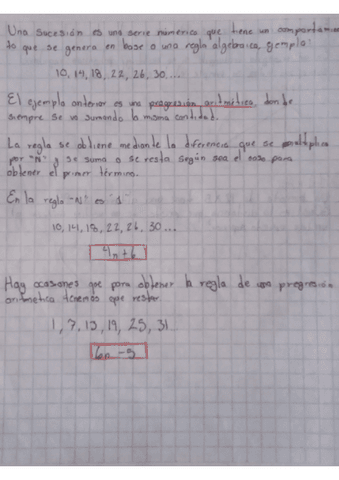 Una sucesión es una serie numerica que tiene un comportamien
to que se genera en base a una regla algebraica, ejemplo:
10, 14, 18, 22, 26, 30...
El ejemplo anterior es una progresión aritmética, donde
siempre se va sumando la misma cantidad.
La regla se obtiene mediante la diferencia que se multiplica
por "N" y se suma o se resta según sea el caso para
obtener el primer termino.
En la regla "N" es "1"
10, 14, 18, 22, 26, 30...
4n+6
Hay ocasiones que para obtener la regla de una progresión
aritmetica tenemos que restar.
1, 7, 13, 19, 25, 31...
6n-5